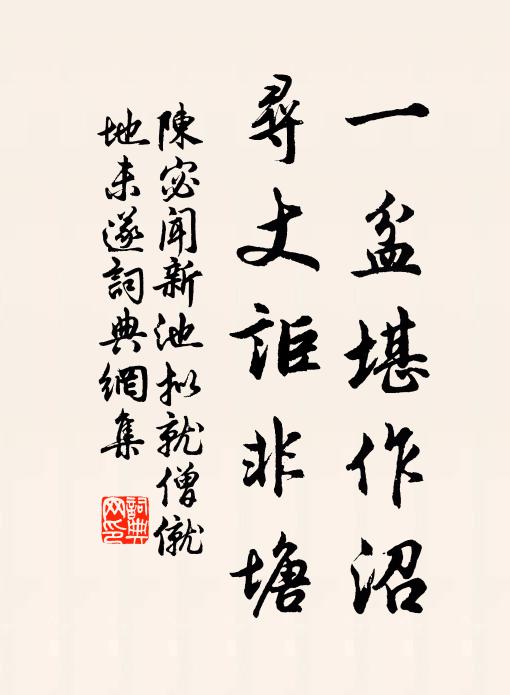 一盆堪作沼
尋丈詎非塘
陳宓聞新池拟就僧僦
地未遂詞典網集
詞典網印